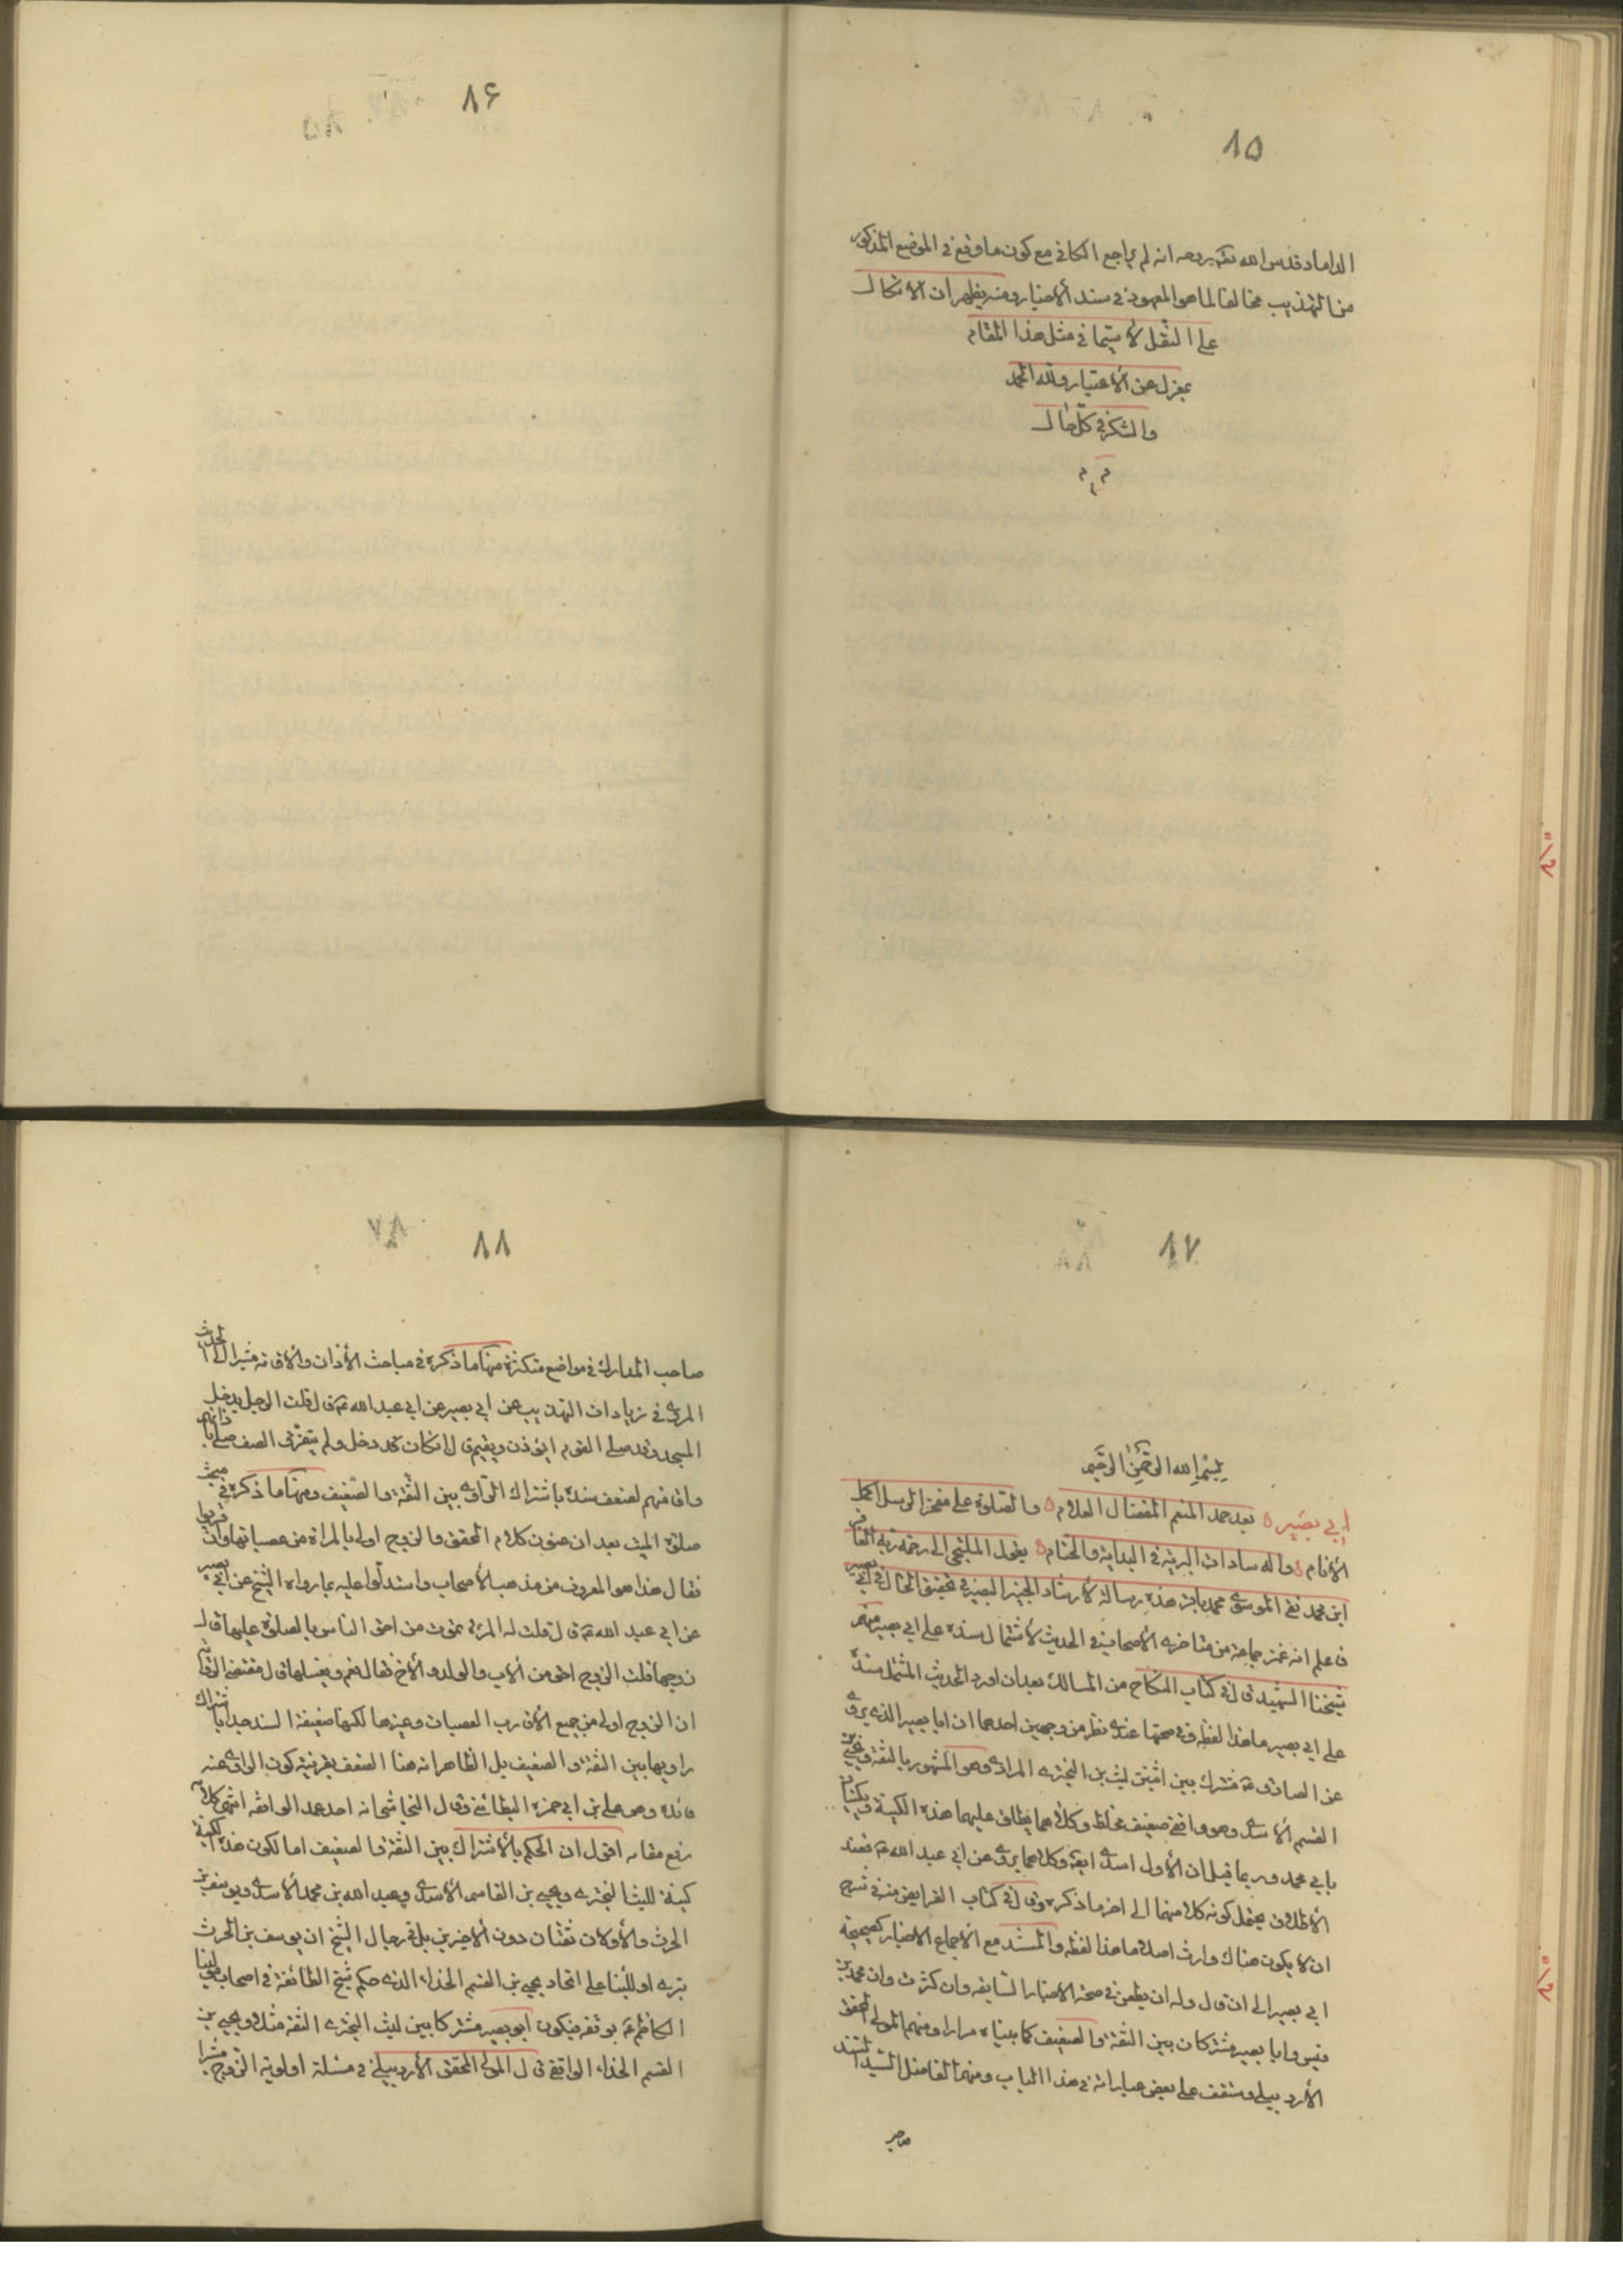 ٨٥
الداماد قدس الله تعالى روحه انه لم يراجع الكافي مع كون ما وقع في الموضع المذكور
من التهذيب مخالفا لما هو المعهود في سند الأخبار ومنه يظهر ان الاتكال
على النقل لا سيما في مثل هذا المقام
بمعزل عن الأعتبار ولله الحمد
والشكر في كل حال
٨۶
٨٧
بسم الله الرحمن الرحيم
ابي بصير بعد حمد المنعم المفضال العلام والصلوة على مفخر الرسل الكرام
الأنام واله سادات البرية في البداية والختام يقول الملتجي الى رحمة ربه الغافر
ابن محمد نقي الموسوي محمد باقر هذه رسالة لأرشاد الخبير البصير في تحقيق الحال في ابي بصير
فاعلم انه غمز جماعة من متاخري الأصحاب في الحديث لأشتمال سنده على ابي بصير منهم
شيخنا الشهيد قال في كتاب النكاح من المسالك بعد ان اورد الحديث المشتمل سنده
على ابي بصير ما هذا لفظه وفي صحتها عندي نظر من وجهين احدهما ان ابا بصير الذي يروي
عن الصادق ع مشترك بين اثنين ليث بن البختري المرادي وهو المشهور بالثقة ويحيى بن
القسم الأسدي وهو واقفي ضعيف مخلط وكلاهما يطلق عليهما هذه الكنية ويكنيان
بابي محمد وربما قيل ان الأول اسدي ايضا وكلاهما يروي عن ابي عبد الله ع فعند
الأطلاق يحتمل كونه كلا منهما الى اخر ما ذكره وقال في كتاب الفرايض منه في شرح
ان لا يكون هناك وارث اصلا ما هذا لفظه والمستند مع الأجماع الاخبار كصحيحة
ابي بصير الى ان قال وله ان يطعن في صحة الاخبار السابقه وان كثرت وان محمد بن
قيس وابا بصير مشتركان بين الثقة والضعيف كما بيناه مرارا ومنهم المولى المحقق
الأردبيلي وستقف على بعض عباراته في هذا الباب ومنهم الفاضل السيد السند
صاحب
٨٨
صاحب المدارك في مواضع متكثرة منها ما ذكره في مباحث الأذان والاقامة مشيرا الى الحديث
المروي في زيادات التهذيب عن ابي بصير عن ابي عبد الله ع قال قلت الرجل يدخل
المسجد وقد صلى القوم ايؤذن ويقيم قال ان كان قد دخل ولم يتفرق الصف صلى باذانهم
واقامتهم لضعف سنده باشتراك الراوي بين الثقة والضعيف ومنها ما ذكره في مبحث
صلوة الميت بعد ان عنون كلام المحقق والزوج اولى بالمراة من عصباتها وان قربوا
فقال هذا هو المعروف من مذهب الأصحاب واستدلوا عليه بما رواه الشيخ عن ابي بصير
عن ابي عبد الله ع قال قلت له المراة تموت من احق الناس بالصلوة عليها قال
زوجها قلت الزوج احق من الأب والولد والأخ فقال نعم ويغسلها قال مقتضى الرواية
ان الزوج اولى من جميع الأقارب العصبات وغيرها لكنها ضعيفة السند جدا باشتراك
راويها بين الثقة والضعيف بل الظاهر انه هنا الضعف بقرينة كون الراوي عنه
قائده وهو علي بن ابي حمزة البطائني وقال النجاشي انه احد عمد الواقفه انتهى كلامه
رفع مقامه اقول ان الحكم بالأشتراك بين الثقة والضعيف اما لكون هذه الكنية
كنية لليث البختري ويحيى بن القاسم الأسدي وعبد الله بن محمد الأسدي ويوسف بن
الحرث والأولان ثقتان دون الأخيرين بل في رجال الشيخ ان يوسف بن الحرث
بتري او للبناء على اتحاد يحيى بن القسم الحذاء الذي حكم شيخ الطائفة في اصحاب مولينا
الكاظم ع بوقفه فيكون ابو بصير مشتركا بين ليث البختري الثقة مثلا ويحيى بن
القسم الحذاء الواقفي قال المولى المحقق الأردبيلي في مسئلة اولوية الزوج مشيرا